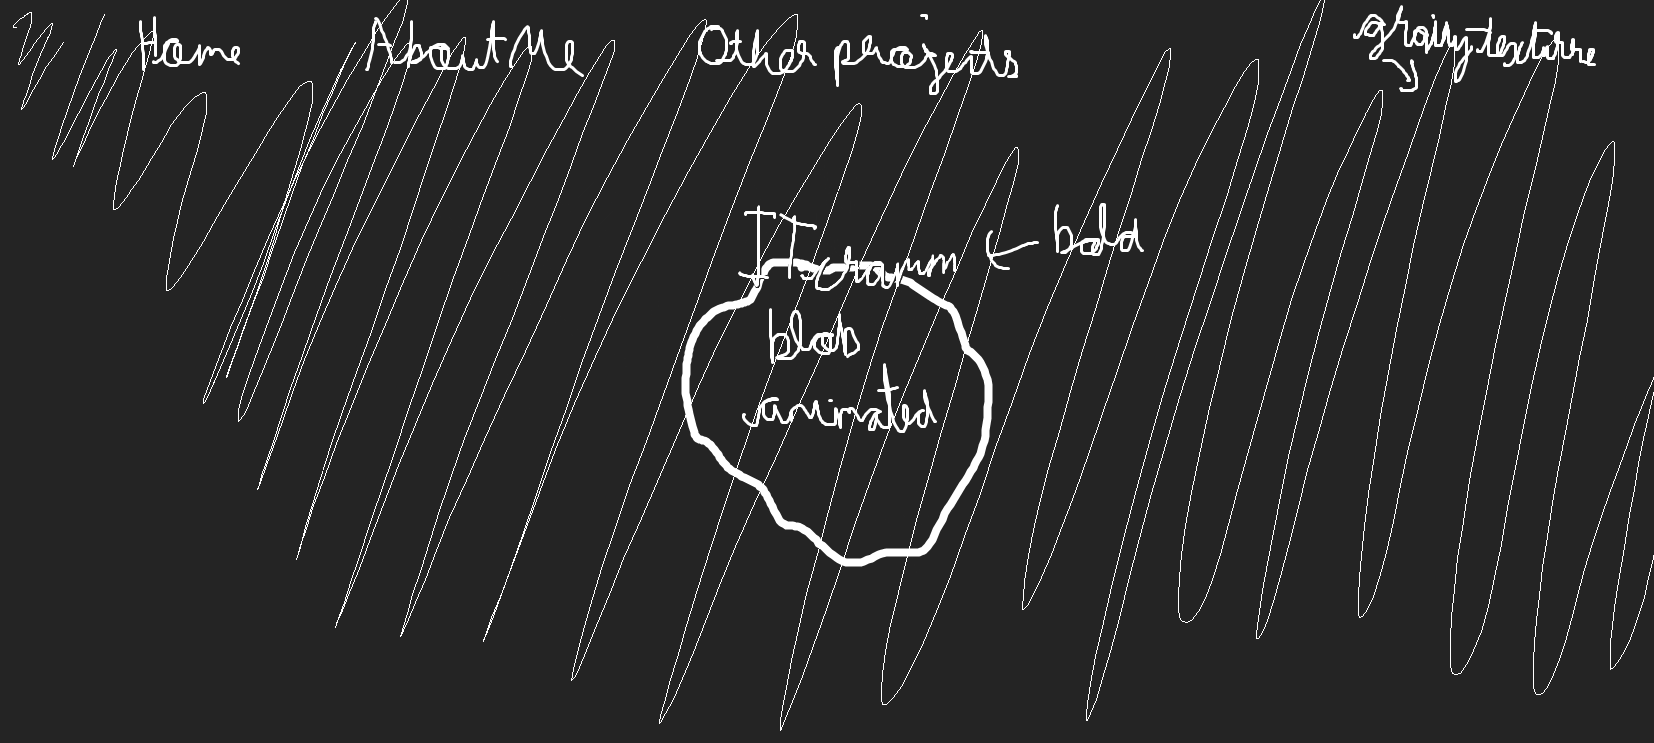 Home About Me Other projects grainy texture
ITscramm bold
blob
animated